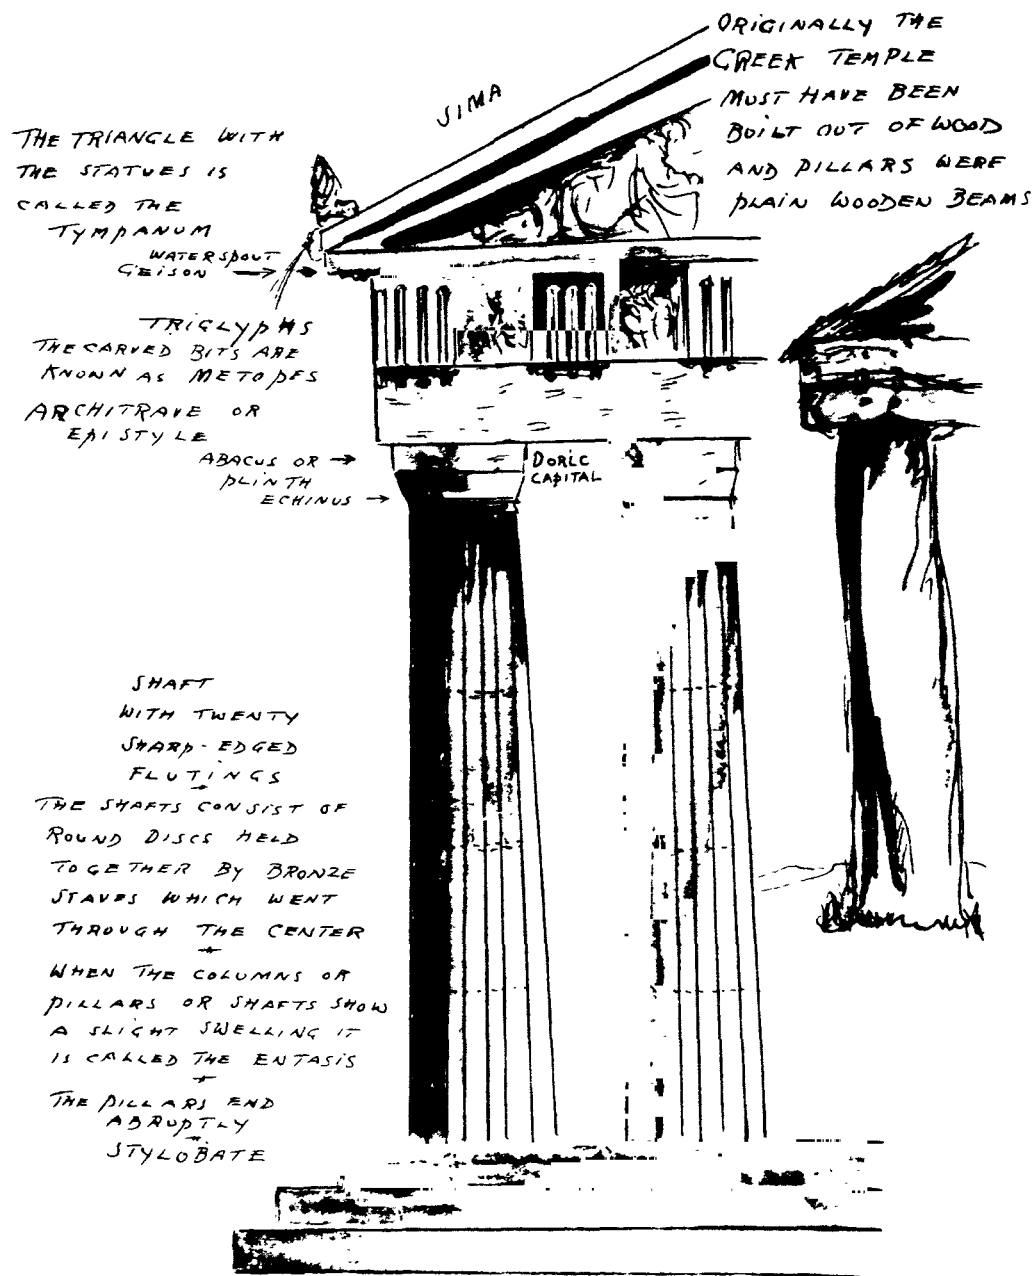 ORIGINALLY THE
GREEK TEMPLE
MUST HAVE BEEN
BUILT OUT OF WOOD
AND PILLARS WERE
PLAIN WOODEN BEAMS
SIMA
THE TRIANGLE WITH
THE STATUES IS
CALLED THE
TYMPANUM
WATERSPOUT
GEISON →
TRIGLYPHS
THE CARVED BITS ARE
KNOWN AS METOPES
ARCHITRAVE OR
EPISTYLE
ABACUS OR →
PLINTH
ECHINUS →
DORIC
CAPITAL
SHAFT
WITH TWENTY
SHARP-EDGED
FLUTINGS
THE SHAFTS CONSIST OF
ROUND DISCS HELD
TOGETHER BY BRONZE
STAVES WHICH WENT
THROUGH THE CENTER
WHEN THE COLUMNS OR
PILLARS OR SHAFTS SHOW
A SLIGHT SWELLING IT
IS CALLED THE ENTASIS
THE PILLARS END
ABRUPTLY
STYLOBATE